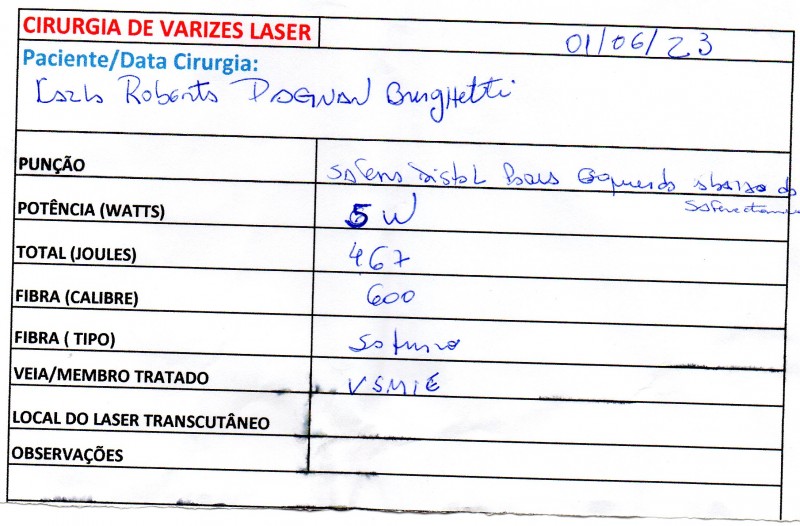 CIRURGIA DE VARIZES LASER 01/06/23
Paciente/Data Cirurgia:
Karla Roberta DAGNAN Burghetti
PUNÇÃO Safena Distal Para Esquerda abaixo do
POTÊNCIA (WATTS) 5 W
TOTAL (JOULES) 467
FIBRA (CALIBRE) 600
FIBRA ( TIPO)
VEIA/MEMBRO TRATADO VSMIE
LOCAL DO LASER TRANSCUTÂNEO
OBSERVAÇÕES